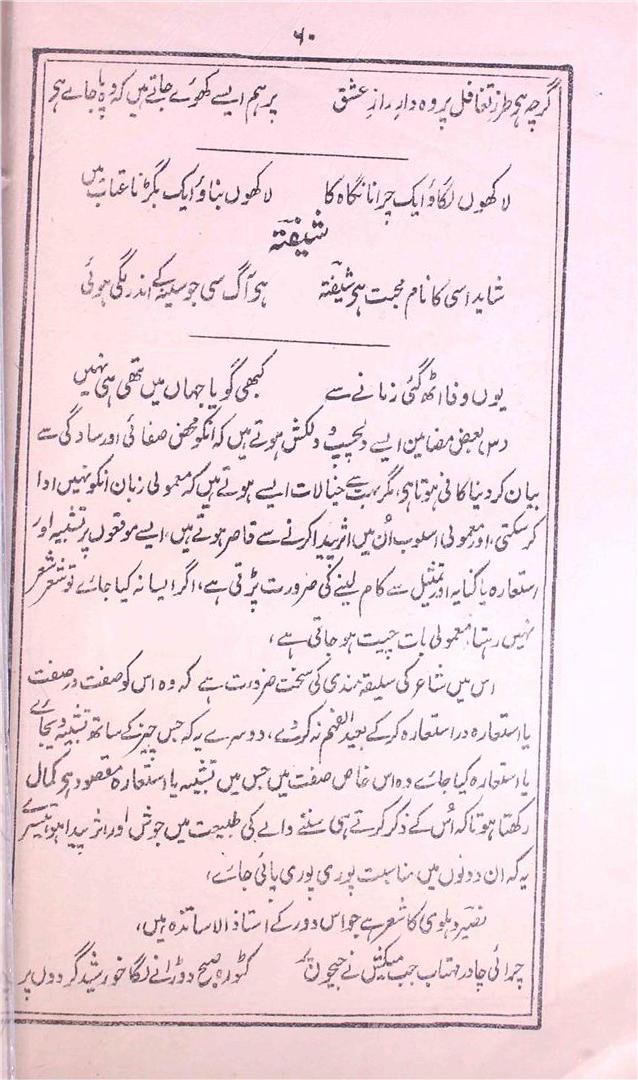 ۶۰
گرچہ ہی طرز تغافل پردہ دار راز عشق پر ہم ایسے کھوئے جاتے ہیں کہ وہ پا جاے ہو
لاکھوں لگاؤ ایک چرانا نگاہ کا لاکھوں بناؤ ایک بگڑنا عتاب میں
شیفتہ
شاید اسی کا نام محبت ہو شیفتہ ہو آگ سی جو سینہ کے اندر لگی ہوئی
یوں وفا اٹھ گئی زمانے سے کبھی گویا جہاں میں تھی ہی نہیں
بعض مضامین ایسے دلچسپ و دلکش ہوتے ہیں کہ انکو محض صفائی اور سادگی سے
بیان کر دینا کافی ہوتا ہی، مگر بہت سے خیالات ایسے ہوتے ہیں کہ معمولی زبان انکو نہیں ادا
کر سکتی، اور معمولی اسلوب اُن میں اثر پیدا کرنے سے قاصر ہوتے ہیں، ایسے موقعوں پر تشبیہ اور
استعارہ یا کنایہ اور تمثیل سے کام لینے کی ضرورت پڑتی ہے، اگر ایسا نہ کیا جاے تو شعر شعر
نہیں رہتا، معمولی بات چیت ہو جاتی ہے،
اس میں شاعر کی سلیقہ مندی کی سخت ضرورت ہے کہ وہ اس کو صفت در صفت
یا استعارہ در استعارہ کر کے بعید الفہم نہ کر دے، دوسرے یہ کہ جس چیز کے ساتھ تشبیہ دیجاے
یا استعارہ کیا جاے وہ اس خاص صفت میں جس میں تشبیہ یا استعارہ مقصود ہو کمال
رکھتا ہو تاکہ اُس کے ذکر کرتے ہی سننے والے کی طبیعت میں جوش اور اثر پیدا ہو، تیسرے
یہ کہ ان دونوں میں مناسبت پوری پوری پائی جاے،
نصیر دہلوی کا شعر ہے جو اس دور کے استاذ الاساتذہ ہیں،
چرائی چادر مہتاب جب میکش نے جیحون پر کٹورہ صبح دوڑانے لگا خورشید گردوں پر